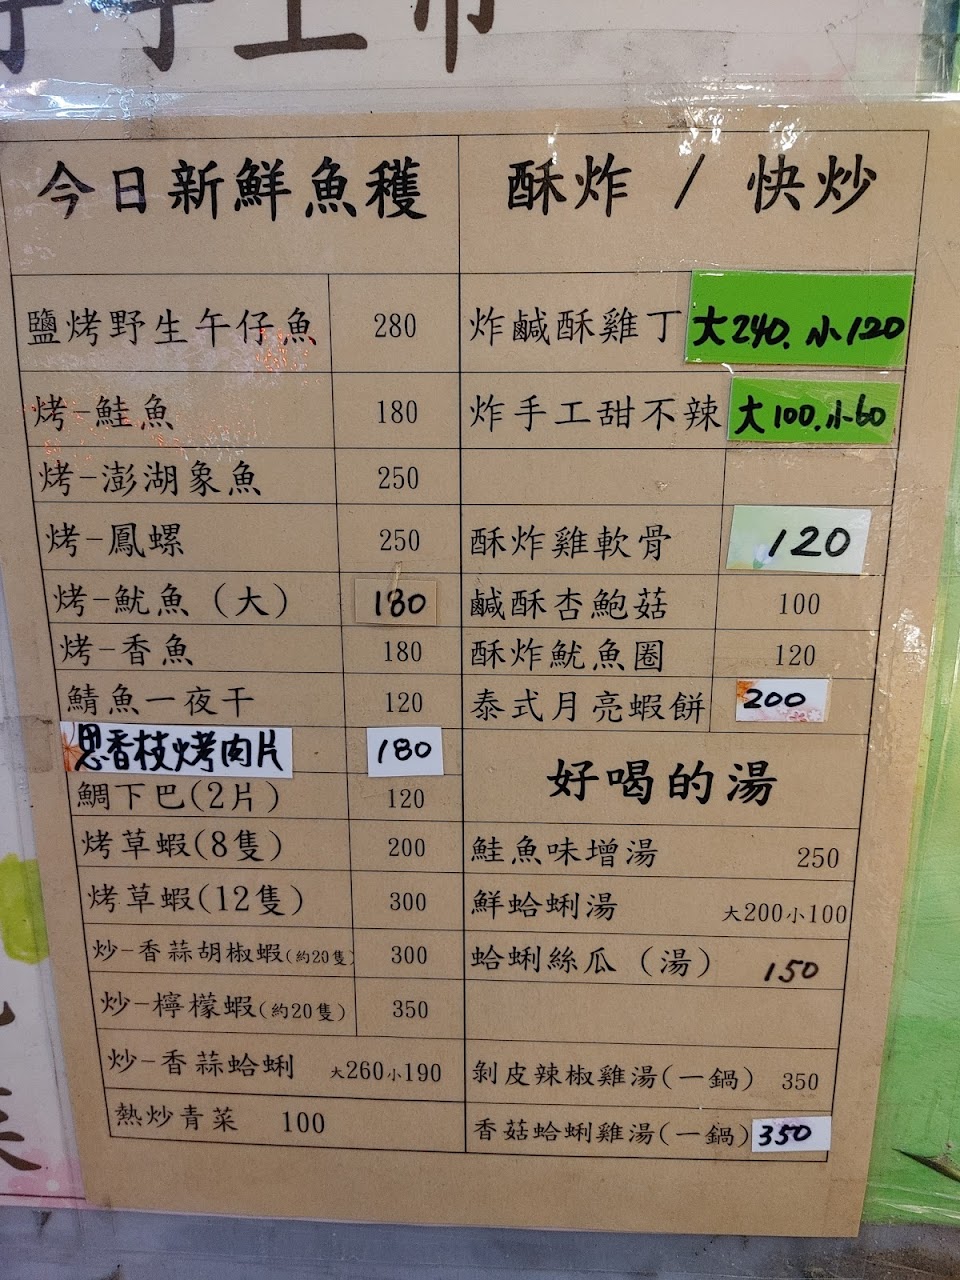 今日新鮮魚穫
鹽烤野生午仔魚 280
烤-鮭魚 180
烤-澎湖象魚 250
烤-鳳螺 250
烤-魷魚（大） 180
烤-香魚 180
鯖魚一夜干 120
思香枝烤肉片 180
鯛下巴(2片) 120
烤草蝦(8隻) 200
烤草蝦(12隻) 300
炒-香蒜胡椒蝦(約20隻) 300
炒-檸檬蝦(約20隻) 350
炒-香蒜蛤蜊 大260小190
熱炒青菜 100
酥炸 / 快炒
炸鹹酥雞丁 大240.小120
炸手工甜不辣 大100.小60
酥炸雞軟骨 120
鹹酥杏鮑菇 100
酥炸魷魚圈 120
泰式月亮蝦餅 200
好喝的湯
鮭魚味增湯 250
鮮蛤蜊湯 大200小100
蛤蜊絲瓜（湯） 150
剝皮辣椒雞湯(一鍋) 350
香菇蛤蜊雞湯(一鍋) 350